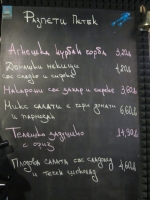 Разпети Петък
Агнешка курбан чорба 3,20лв
Домашни мекици 4,20лв
със сладко и сирене
Макарони със захар и сирене 3,60лв
Микс салати с чери домати 6,60лв
и пармезан
Телешко задушено 14,90лв
с ориз
Плодова салата със сладолед 4,60лв
и течен шоколад